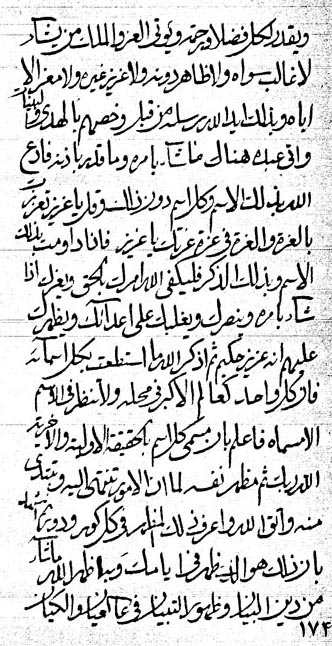 ويقدر لكل فضلا ورحمة ويؤتى العز والملك من يشاء
لا غالب سواه ولا ظاهر دونه ولا عزيز غيره ولا معز الا
اياه وبذلك ايد الله رسله من قبل وخصهم بالهدى والبينات
وانى عبده هناك ما شاء بامره وما قدر باذنه فادع
الله بذلك الاسم وكل اسم دون ذلك وقل يا عزيز تعززت
بالعزة والعزة فى عزة عزتك يا عزيز فاذا داومت بذلك
الاسم وبذلك الذكر فليكفى الله امرك بالحق ويعزك اذا
شاء بامره وينصرك ويغلبك على اعدائك ويظهرك
عليهم انه عزيز حكيم ثم اذكر الله ما استطعت بكل اسمائه
فان كل واحد كعالم الاكبر فى محله ولا تنظر فى الاسم
الا مسماه فاعلم بان مسمى كل اسم بالحقيقة الاولية والاخرية
الله ربك ثم مظهر نفسه لما ان الامور تنتهى اليه وتبتدى
منه واتق الله واعرف ذلك المظهر فى كل كور ودور
بان ذلك هو الذى يظهر فى ايامك وبما اظهر الله ما شاء
من دين البيان وظهور التبيان فى عالم العيان والكيان
١٧٤